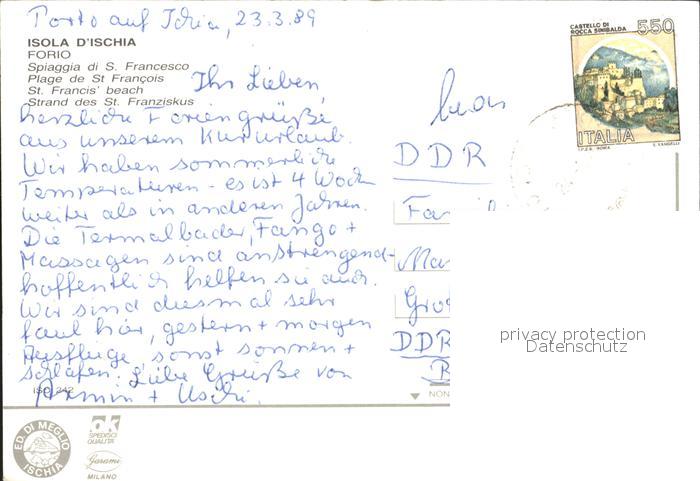 Porto auf Ischia, 23.3.89
ISOLA D'ISCHIA
FORIO
Spiaggia di S. Francesco
Plage de St François
St. Francis' beach
Strand des St. Franziskus
Ihr Lieben,
herzliche Feriengrüße
aus unserem Kururlaub.
Wir haben sommerliche
Temperaturen - es ist 4 Woch
weiter als in anderen Jahren.
Die Termalbäder, Fango +
Massagen sind anstrengend-
hoffentlich helfen sie auch.
Wir sind diesmal sehr
faul hier, gestern + morgen
Ausflüge sonst sonnen +
schlafen. Liebe Grüße von
Armin + Uschi.
ISC 242
CASTELLO DI
ROCCA SINIBALDA
550
ITALIA
I.P.Z.S. ROMA
E. VANGELLI
DDR
Fami
Gro
DDR
NON
privacy protection
Datenschutz
ED. DI MEGLIO
ISCHIA
ok
SPEDISCI
QUALITÀ
Garami
MILANO